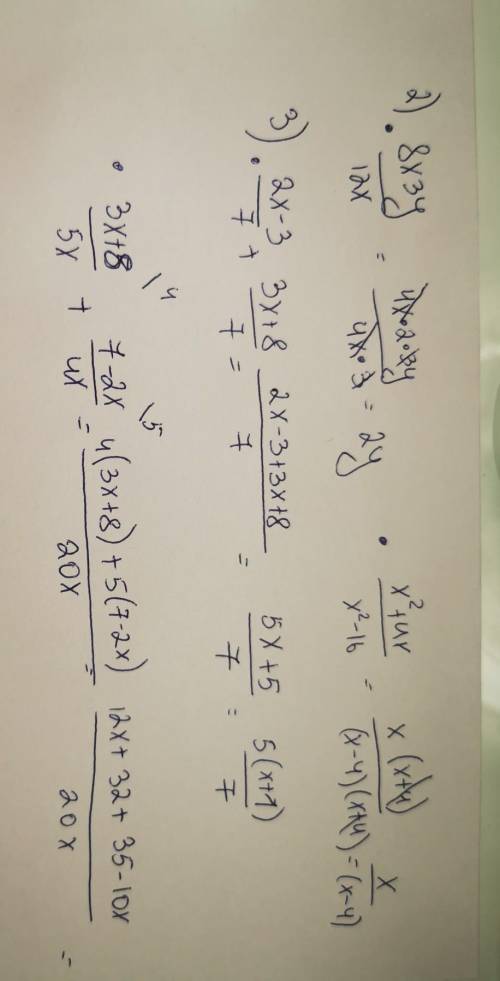 2). • 8x3y/12x = 4x•2•3y/4x•3 = 2y • x²+4x/x²-16 = x(x+4)/(x-4)(x+4) = x/(x-4)
3). • 2x-3/7 + 3x+8/7 = 2x-3+3x+8/7 = 5x+5/7 = 5(x+1)/7
• 3x+8/5x \4 + 7-2x/4x \5 = 4(3x+8)+5(7-2x)/20x = 12x+32+35-10x/20x =